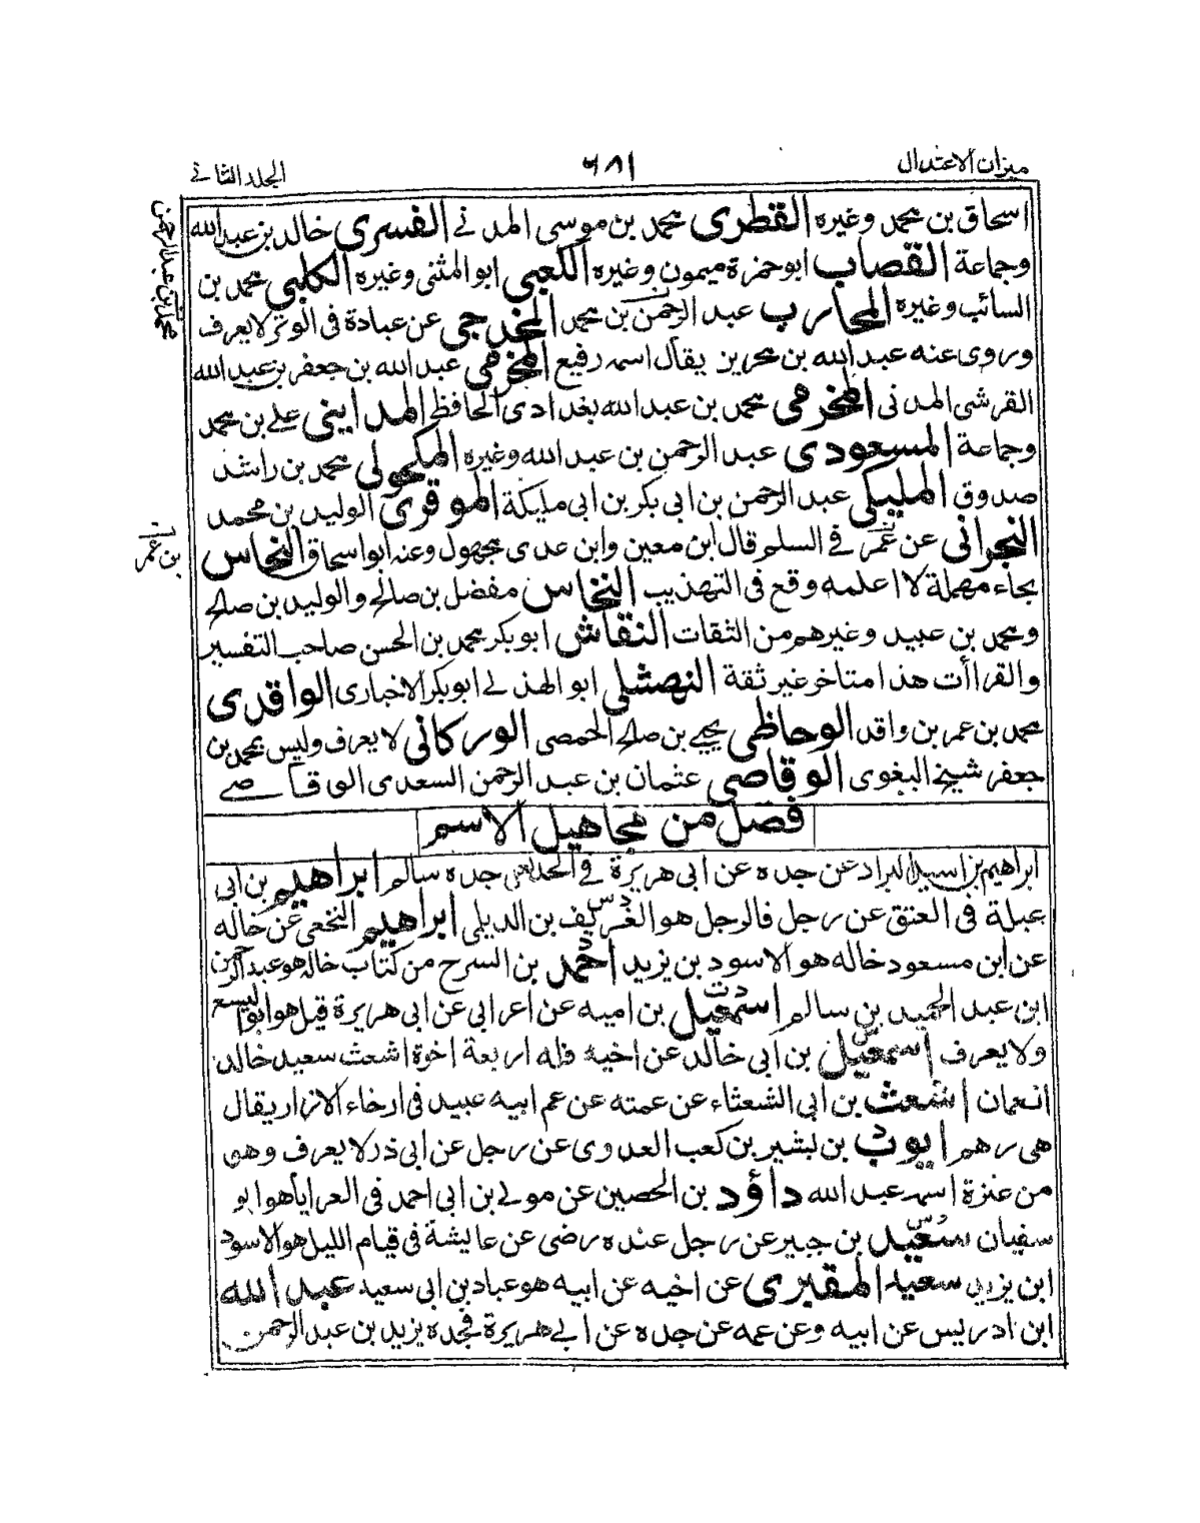 ميزان الاعتدال
٦٨١
الجلد الثانے
اسحاق بن محمد وغيره القطرى محمد بن موسى المدنے القسرى خالد بن عبد الله
وجماعة القصاب ابوحمزة ميمون وغيره الكعبى ابو المثنى وغيره الكلبى محمد بن
السائب وغيره المحاربى عبد الرحمن بن محمد المخدجى عن عبادة فى الوتر لا يعرف
وروى عنه عبد الله بن محريز يقال اسمه رفيع المخرمى عبد الله بن جعفر بن عبد الله
القرشى المدنى المخرمى محمد بن عبد الله بغدادى الحافظ المدايني على بن محمد
وجماعة المسعودى عبد الرحمن بن عبد الله وغيره المكحولى محمد بن راشد
صدوق المليكى عبد الرحمن بن ابى بكر بن ابى مليكة الموقرى الوليد بن محمد
النجرانى عن عمر فے السلم قال ابن معين وابن عدى مجهول وعنه ابو اسحاق النحاس
بحاء مهملة لا اعلمه وقع فى التهذيب النخاس مفضل بن صالح والوليد بن صالح
ومحمد بن عبيد وغيرهم من الثقات النقاش ابو بكر محمد بن الحسن صاحب التفسير
والقراأت هذا متاخر غير ثقة النهشلى ابو الهذلے ابو بكر الاخبارى الواقدى
محمد بن عمر بن واقد الوحاظى يحيے بن صالح الحمصى الوركانى لا يعرف وليس بمحمد بن
جعفر شيخ البغوى الوقاصى عثمان بن عبد الرحمن السعدى الوقاصے
فصل من مجاهيل الاسم
ابراهيم بن اسيد البراد عن جده عن ابى هريرة فے جده سالم ابراهيم بن ابى
عبلة فى العتق عن رجل فالرجل هو الغريف بن الديلى ابراهيم النخعى عن خاله
عن ابن مسعود خاله هو الاسود بن يزيد احمد بن السرح من كتاب خاله هو عبد الرحمن
ابن عبد الحميد بن سالم اسمعيل بن اميه عن اعرابى عن ابى هريرة قيل هو ابو اليسع
ولا يعرف اسمعيل بن ابى خالد عن اخيه فله اربعة اخوة اشعث سعيد خالد
انعمان اشعث بن ابى الشعثاء عن عمته عن عم ابيه عبيد فى ارخاء الازار يقال
هى رهم ايوب بن بشير بن كعب العدوى عن رجل عن ابى ذر لا يعرف وهو
من عنزة اسمه عبد الله داؤد بن الحصين عن مولے بن ابى احمد فى العرايا هو ابو
سفيان سعيد بن جبير عن رجل عنده رضى عن عايشة فى قيام الليل هو الاسود
ابن يزيد سعيد المقبرى عن اخيه عن ابيه هو عباد بن ابى سعيد عبد الله
ابن ادريس عن ابيه وعن عمه عن جده عن ابے هريرة فجده يزيد بن عبد الرحمن
محمد بن عبد الرحمن
بن عمر